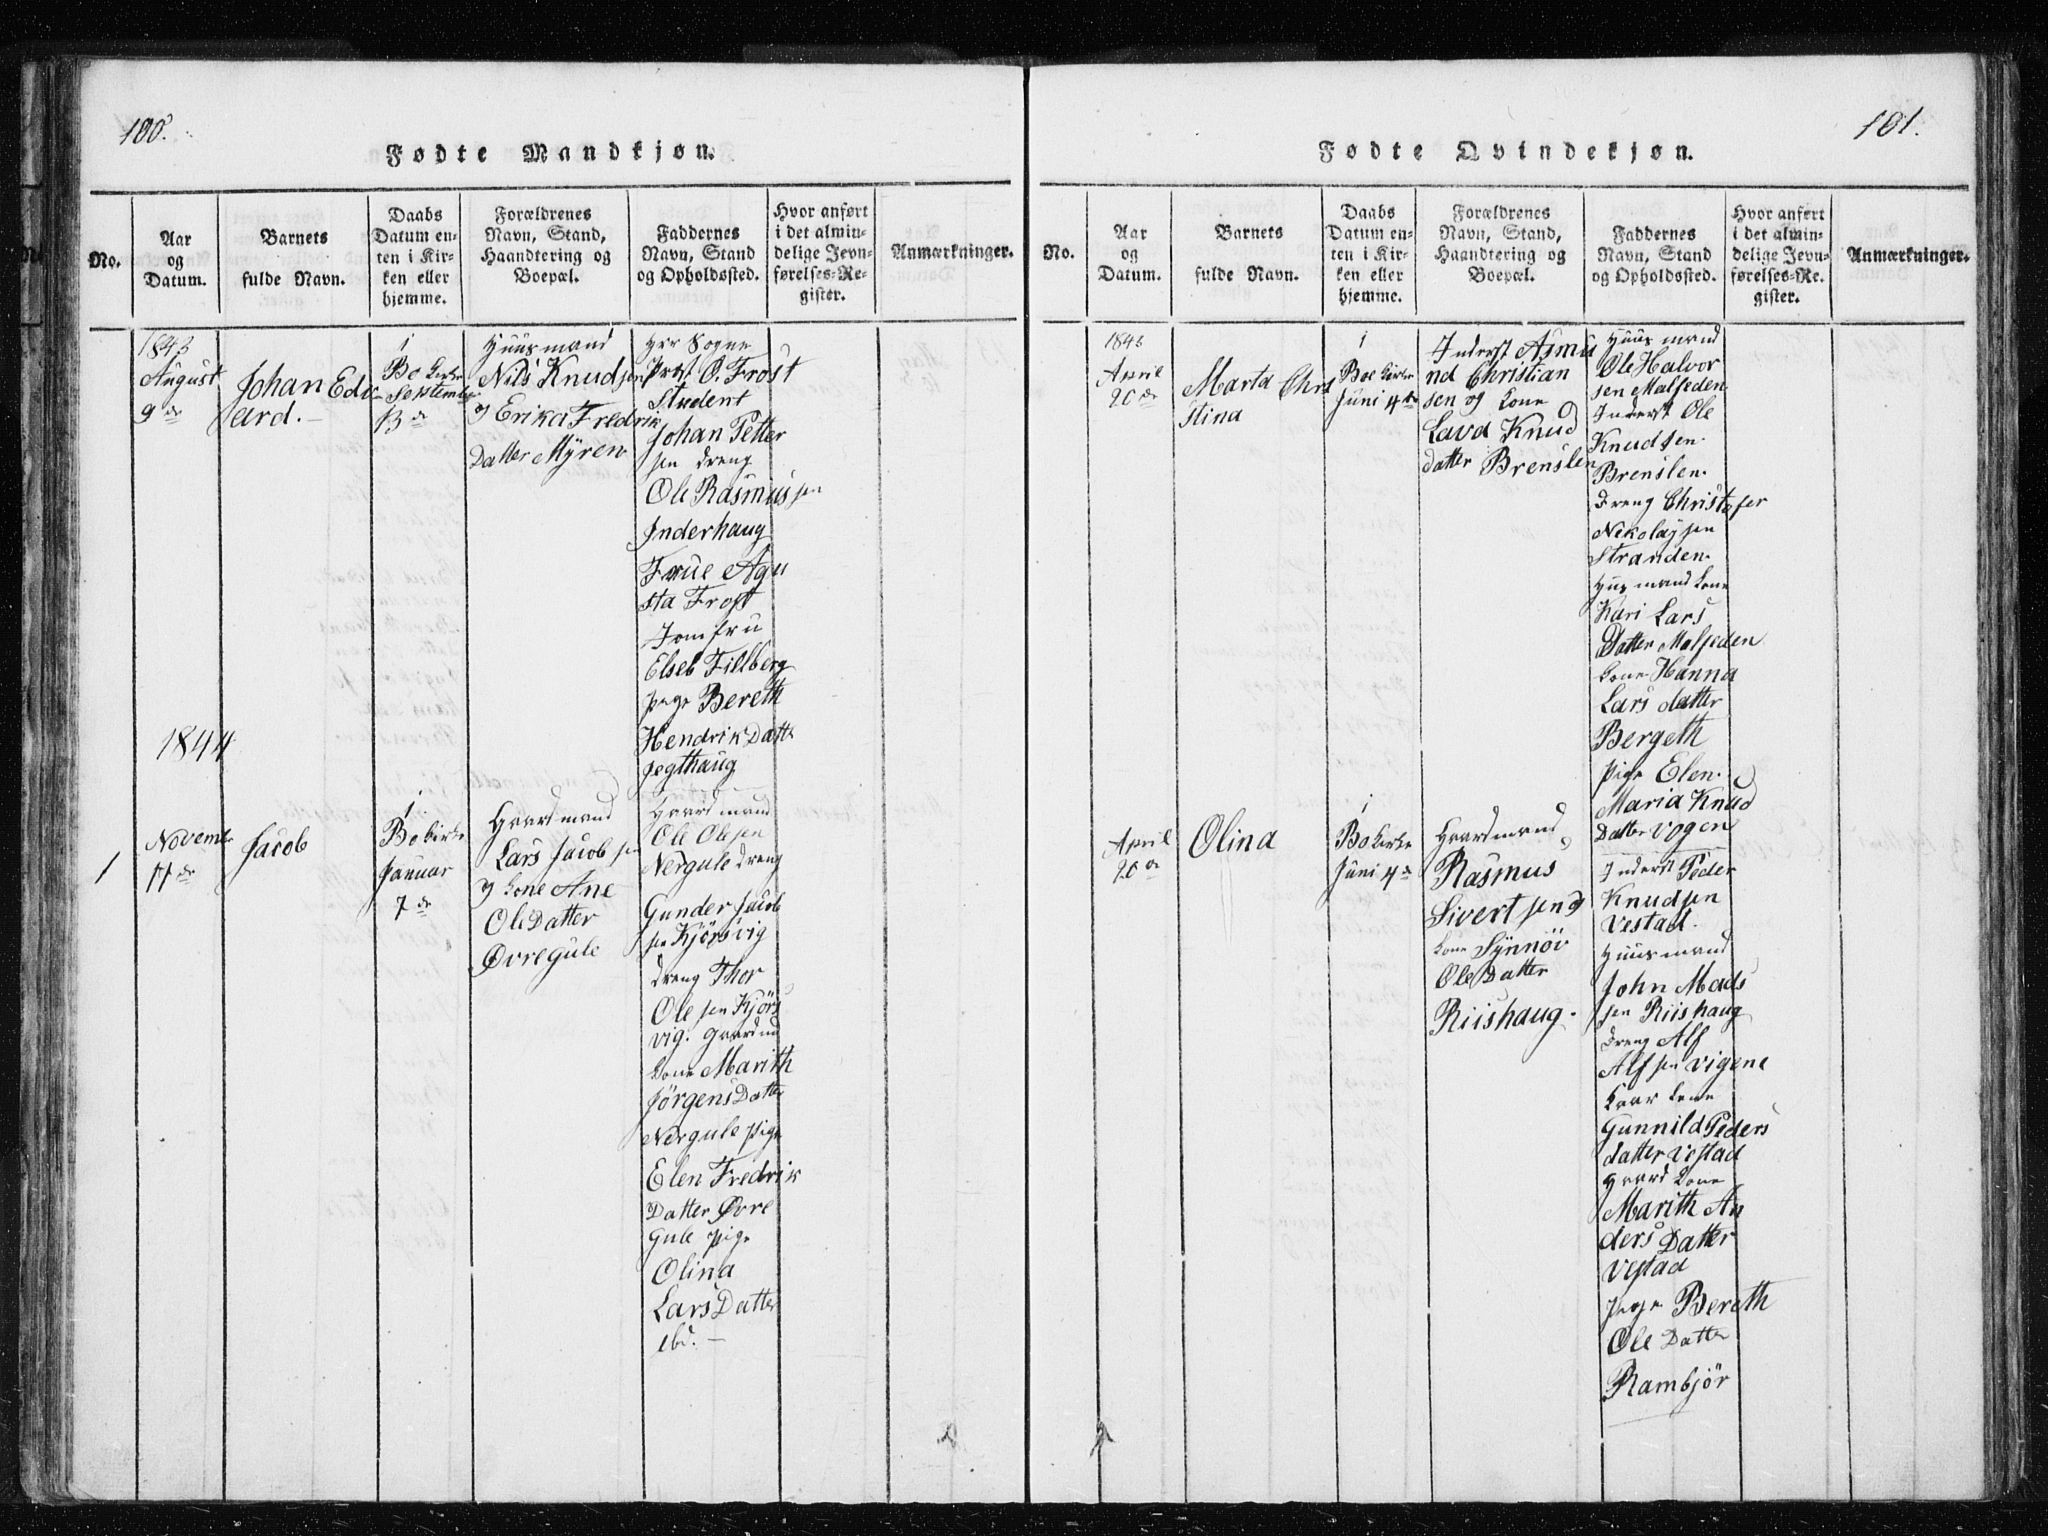 100.
Fødte Mandkjøn.
No.
Aar
og
Datum.
Barnets
fulde Navn.
Daabs
Datum en-
ten i Kir-
ken eller
hjemme.
Forældrenes
Navn, Stand,
Haandtering og
Boepæl.
Faddernes
Navn, Stand
og Opholdssted.
Hvor anført
i det almin-
delige Jevn-
førelses-Re-
gister.
Anmærkninger.
1843
August
9de
Johan Edv
ard.
i
Bo kirke
September
13de
Huusmand
Nils Knudsen
og Erika Fredrik
Datter Myren
Herr Sogne
Prest O. Frost
Student
Johan Petter
sen dreng
Ole Rasmussen
Inderhaug
Frue Agu
sta Frost
Jomfru
Elseb Fillberg
pige Bereth
Hendrik Datter
Jegthaug
1844
1
Novembr
17de
Jacob
i
Bo kirke
Januar
7de
Gaardmand
Lars Jacobsen
og kone Ane
Ole Datter
Øvregule
Gaardmand
Ole Olesen
Nergule dreng
Gunder Jacob
sen Kjörsvig
dreng Thor
Olesen Kjörs
vig. Gaardmd
kone Marith
Jörgens Datter
Nergule pige
Elen Fredrik
Datter Øvre
Gule pige
Olina
Lars Datter
ebd.
101.
Fødte Qvindekjøn.
No.
Aar
og
Datum.
Barnets
fulde Navn.
Daabs
Datum en-
ten i Kir-
ken eller
hjemme.
Forældrenes
Navn, Stand,
Haandtering og
Boepæl.
Faddernes
Navn, Stand
og Opholdssted.
Hvor anført
i det almin-
delige Jevn-
førelses-Re-
gister.
Anmærkninger.
1843
April
20de
Marta Chri
stina
i
Boe kirke
Juni 4de
Inderst Asmu
nd Christian
sen og kone
Lava Knud
datter Brenslen
Huusmand
Ole Halvor
sen Malseden
Inderst Ole
Knudsen
Brenslen.
Dreng Christofer
Nikolaysen
Stranden.
Huusmand kone
Kari Lars
Datter Malseden
kone Hanna
Lars datter
Bergeth
pige Elen
Maria Knud
Datter Vogen
April
20de
Olina
i
Bo kirke
Juni 4de
Gaardmand
Rasmus
Sivertsen og
kone Synnöv
Ole Datter
Riishaug.
Inderst Peder
Knudsen
Vestad.
Huusmand
John Mads
sen Riishaug
dreng Alf
Alfsen Vigene
Gunnild Peders
datter Vestad
Gaard kone
Marith An
ders Datter
Vestad
pige Bereth
Ole Datter
Rambjör